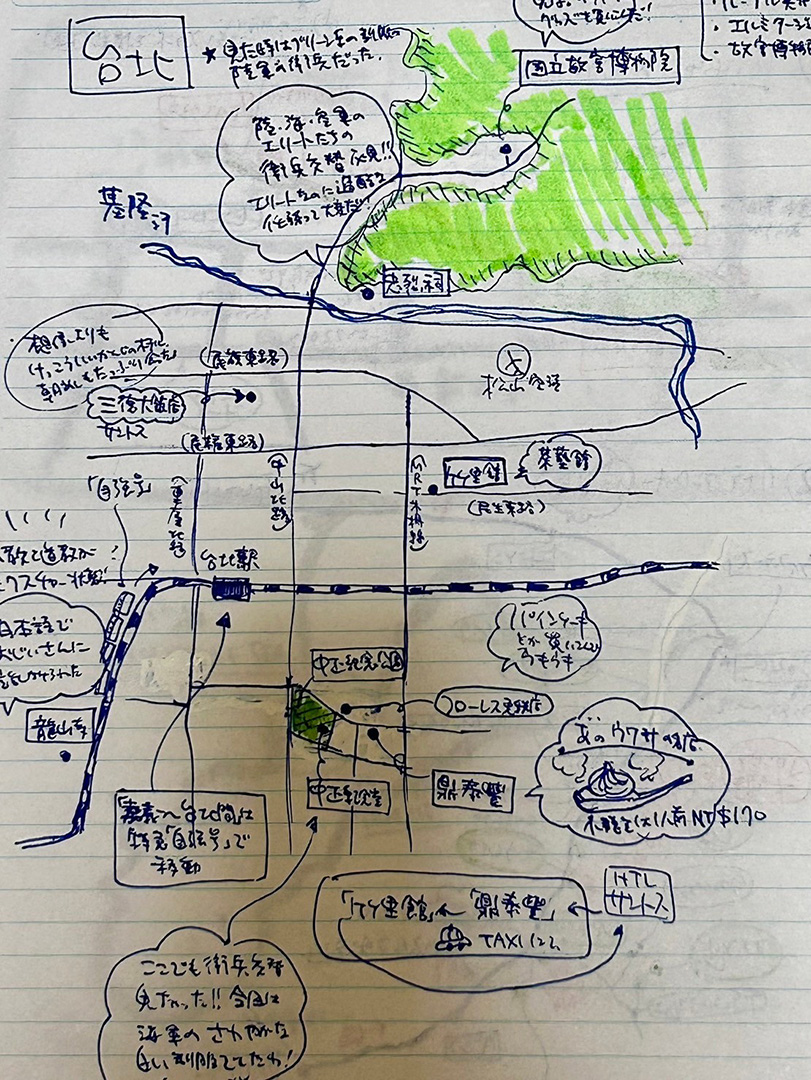 台北
★ 見た時はグリーンの制服の
陸軍の衛兵だった.
グッズを買いこんだ!
・エルミタージュ
・故宮博物
国立故宮博物院
陸・海・空軍の
エリートたちの
衛兵交替 必見!!
エリートなのに過酷な
仕事って大変だ!
基隆河
忠烈祠
想像よりも
(民族東路)
松山空港
三徳大飯店
サントス
(民権東路)
「自強号」
(重慶北路)
(中山北路)
(MRT木柵線)
竹里館
茶藝館
(民生東路)
台北駅
日本語で
おじいさんに
話しかけられた
パインケーキ
とか買いこんで
うきうき
中正紀念公園
フローレス
龍山寺
中正紀念堂
鼎泰豐
あのウワサの名店
小籠包は1人前NT$170
「嘉義〜台北間」は
特急「自強号」で
移動
HTL
サントス
「竹里館」←「鼎泰豐」
TAXIにて
ここでも衛兵交替
見ちゃった!! 今回は
海軍のさわやかな
白い制服でしたわ!